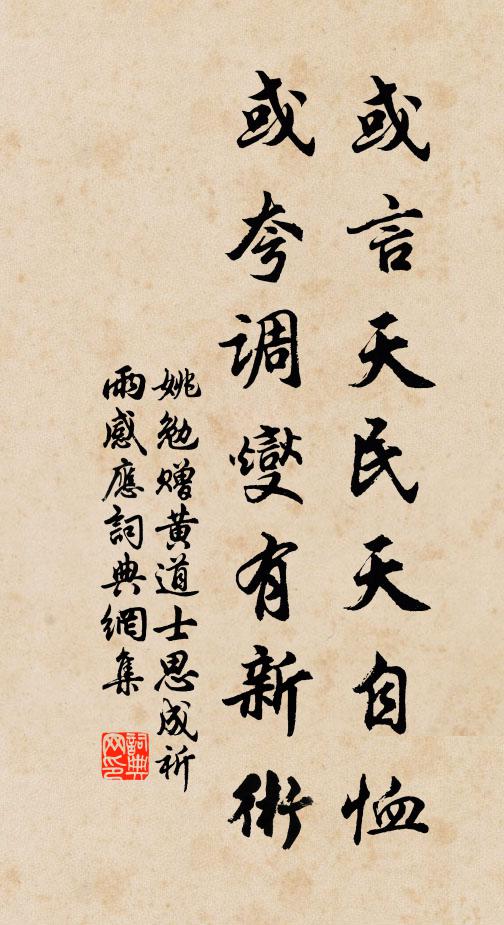 或言天民天自恤
或夸調燮有新術
姚勉贈黄道士思成祈
雨感應詞典網集
詞典
网印